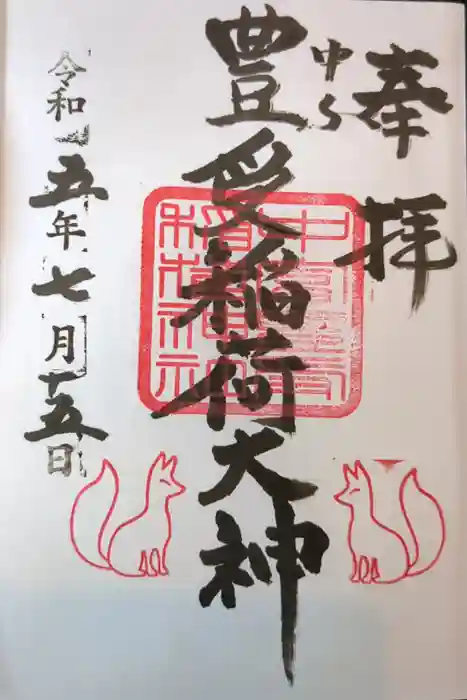 奉拝
中ら
豊受稲荷大神
令和五年七月十五日